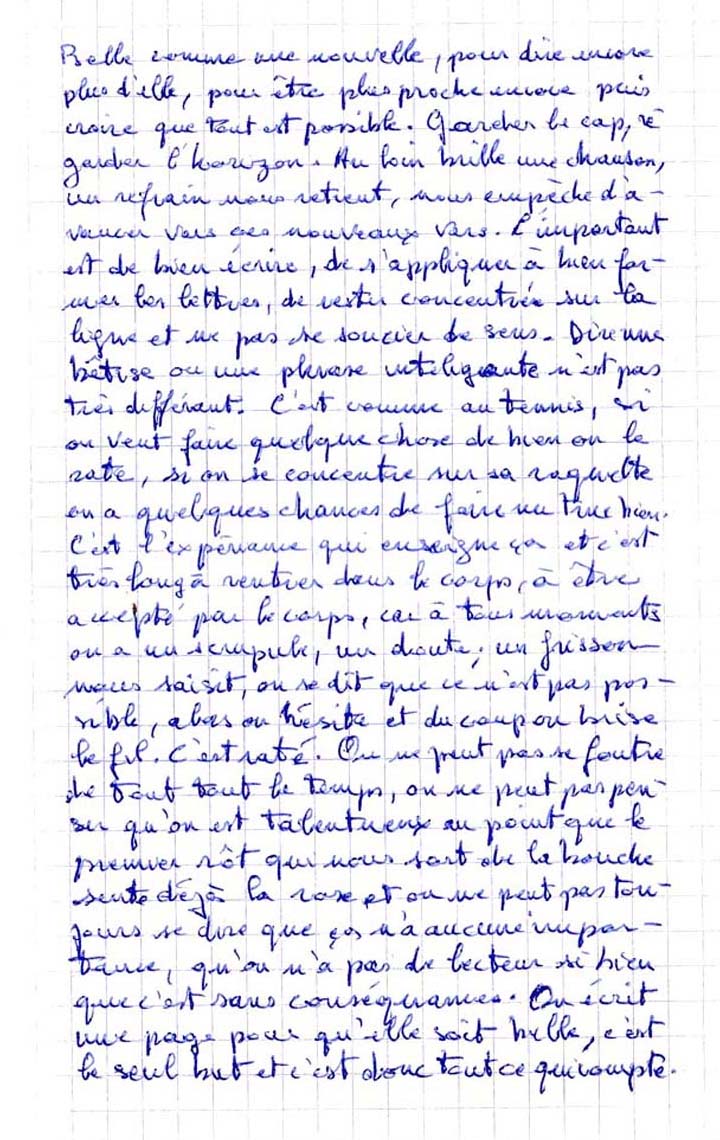 Belle comme une nouvelle, pour dire encore
plus d'elle, pour être plus proche encore puis
croire que tout est possible. Garder le cap, re
garder l'horizon. Au loin brille une chanson,
un refrain nous retient, nous empêche d'a-
vancer vers ces nouveaux vers. L'important
est de bien écrire, de s'appliquer à bien for-
mer les lettres, de rester concentrée sur la
ligne et ne pas se soucier de sens. Dire une
bêtise ou une phrase inteligeante n'est pas
très différant. C'est comme au tennis, si
on veut faire quelque chose de bien on le
rate, si on se concentre sur sa raquette
on a quelques chances de faire un truc bien.
C'est l'expériance qui enseigne ça et c'est
très long à rentrer dans le corps, à être
accepté par le corps, car à tous moments
on a un scrupule, un doute, un frisson
nous saisit, on se dit que ce n'est pas pos-
sible, alors on hésite et du coup on brise
le fil. C'est raté. On ne peut pas se foutre
de tout tout le temps, on ne peut pas pen-
ser qu'on est talentueux au point que le
premier rôt qui nous sort de la bouche
sente déjà la rose et on ne peut pas tou-
jours se dire que ça n'a aucune impor-
tance, qu'on n'a pas de lecteur si bien
que c'est sans conséquances. On écrit
une page pour qu'elle soit belle, c'est
le seul but et c'est donc tout ce qui compte.